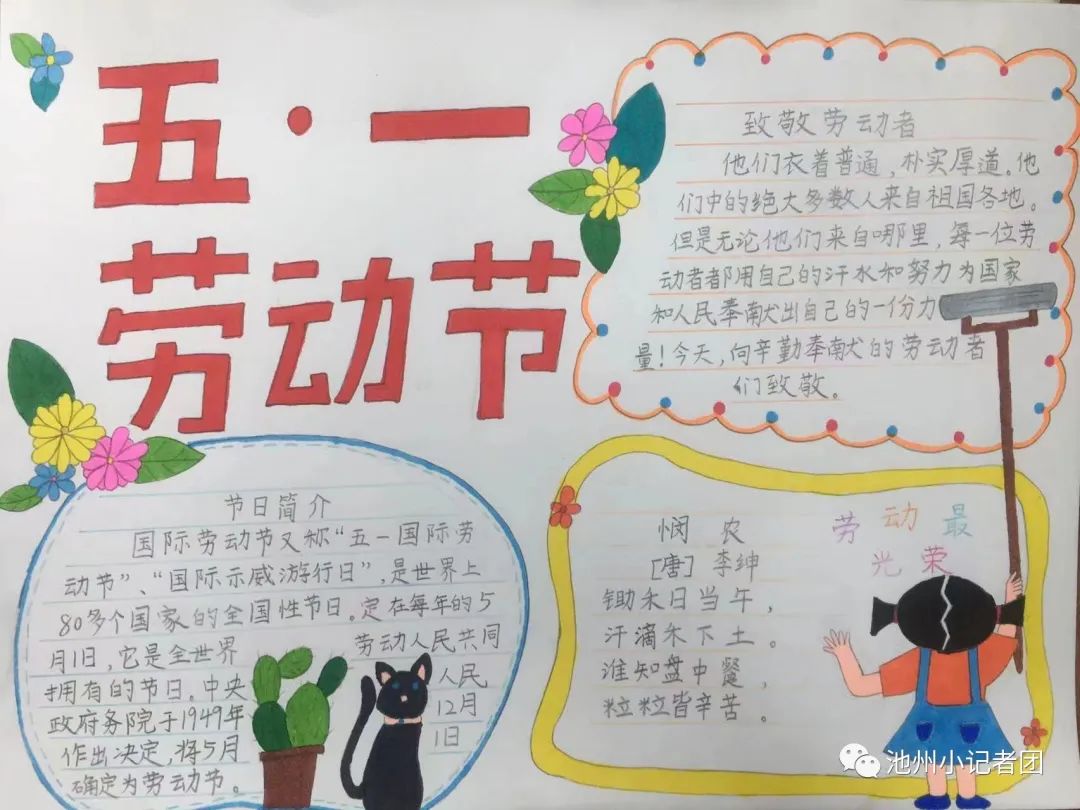 五·一
劳动节
致敬劳动者
他们衣着普通，朴实厚道。他
们中的绝大多数人来自祖国各地。
但是无论他们来自哪里，每一位劳
动者都用自己的汗水和努力为国家
和人民奉献出自己的一份力
量！今天，向辛勤奉献的劳动者
们致敬。
节日简介
国际劳动节又称“五一国际劳
动节”、“国际示威游行日”，是世界上
80多个国家的全国性节日。定在每年的5
月1日，它是全世界 劳动人民共同
拥有的节日。中央 人民
政府务院于1949年 12月
作出决定，将5月 1日
确定为劳动节。
悯农
[唐] 李绅
锄禾日当午，
汗滴禾下土。
谁知盘中餐，
粒粒皆辛苦。
劳动最
光荣
池州小记者团